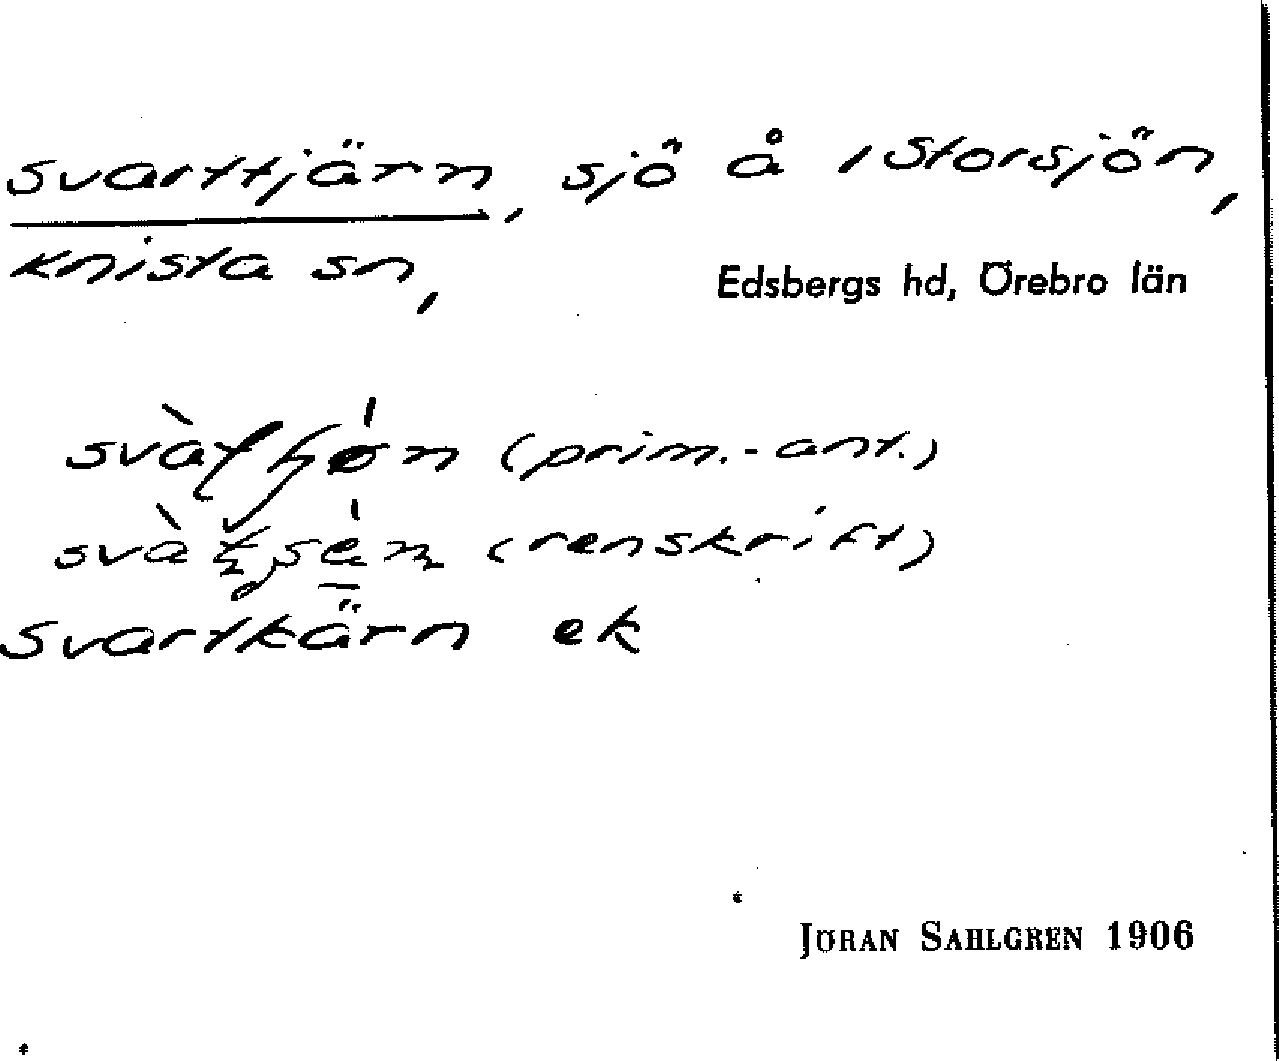 Svarttjärn, sjö å 1 Storsjön,
Knista sn, Edsbergs hd, Örebro län
(prim.-ant.)
(renskrift)
Svartkärn ek
JÖRAN SAHLGREN 1906